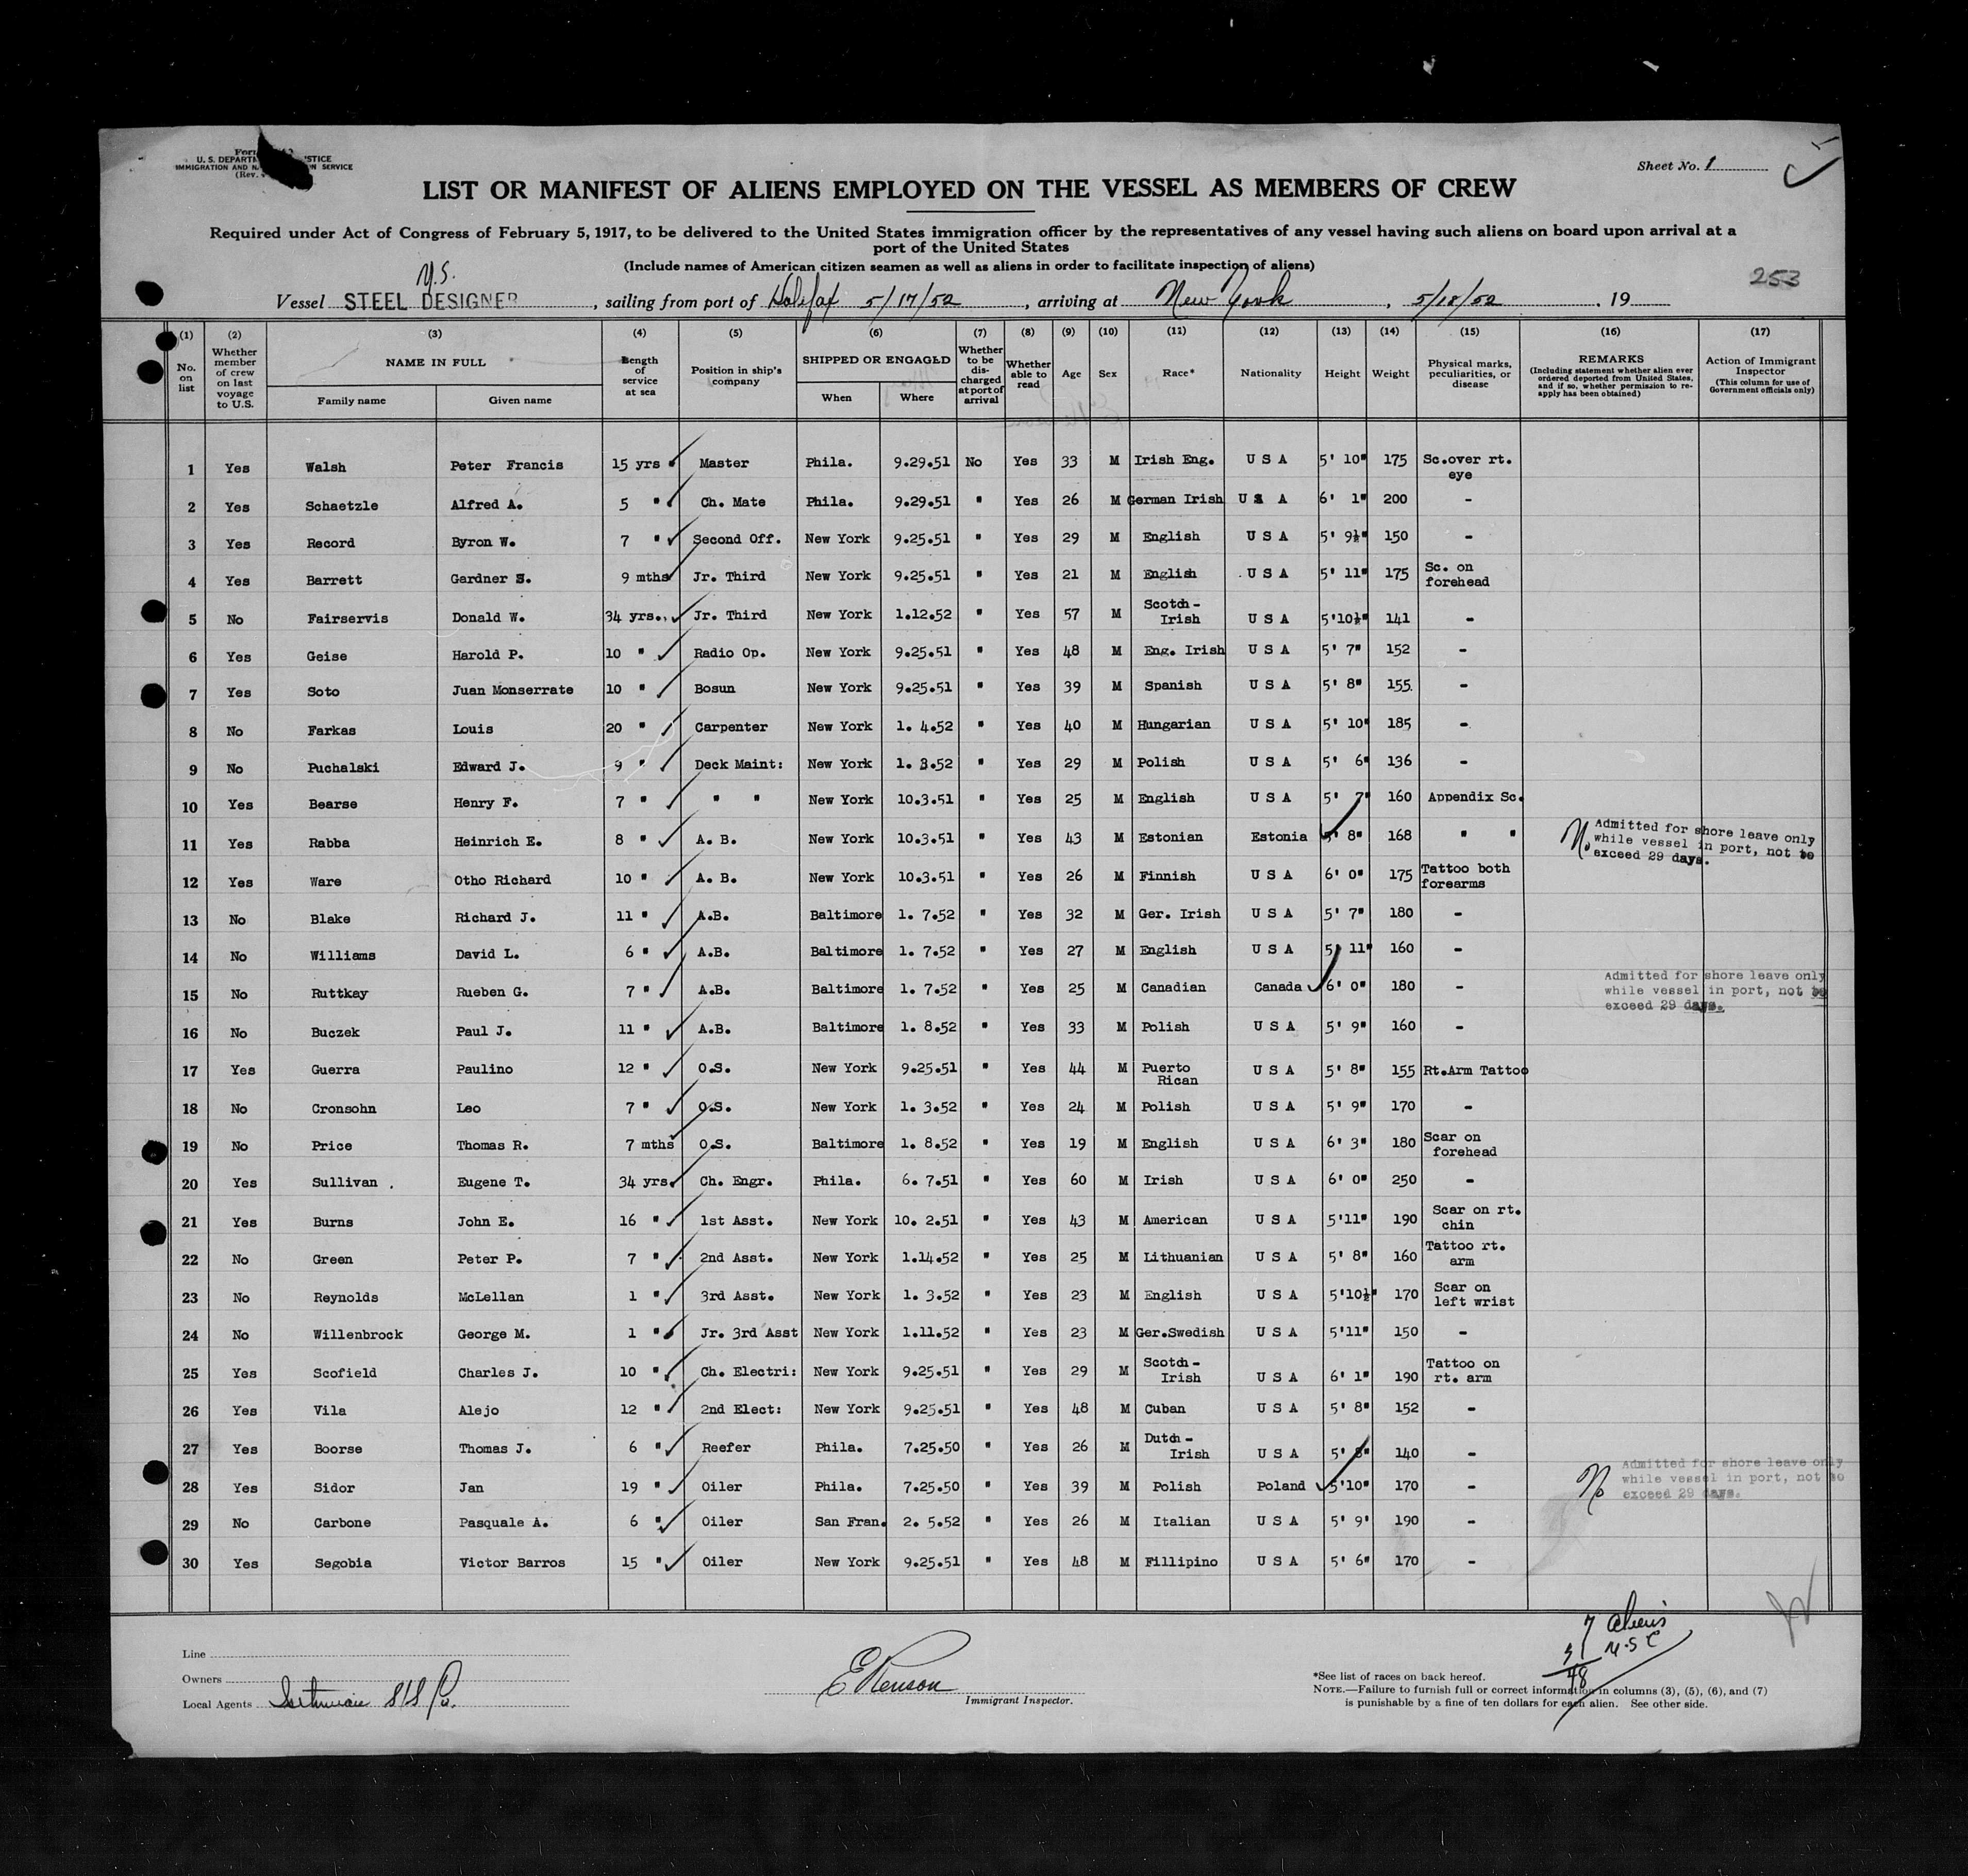 Form
U. S. DEPARTM STICE
IMMIGRATION AND N ON SERVICE
(Rev.
Sheet No. 1
LIST OR MANIFEST OF ALIENS EMPLOYED ON THE VESSEL AS MEMBERS OF CREW
Required under Act of Congress of February 5, 1917, to be delivered to the United States immigration officer by the representatives of any vessel having such aliens on board upon arrival at a
port of the United States
(Include names of American citizen seamen as well as aliens in order to facilitate inspection of aliens)
253
Vessel STEEL DESIGNER, sailing from port of Halifax 5/17/52, arriving at New York, 5/18/52, 19
(1) (2) (3) (4) (5) (6) (7) (8) (9) (10) (11) (12) (13) (14) (15) (16) (17)
No. on list
Whether member of crew on last voyage to U.S.
NAME IN FULL
Family name
Given name
Length of service at sea
Position in ship's company
SHIPPED OR ENGAGED
When
Where
Whether to be discharged at port of arrival
Whether able to read
Age
Sex
Race*
Nationality
Height
Weight
Physical marks, peculiarities, or disease
REMARKS
(Including statement whether alien ever ordered deported from United States, and if so, whether permission to reapply has been obtained)
Action of Immigrant Inspector
(This column for use of Government officials only)
1 Yes Walsh Peter Francis 15 yrs Master Phila. 9.29.51 No Yes 33 M Irish Eng. U S A 5' 10" 175 Sc.over rt. eye
2 Yes Schaetzle Alfred A. 5 " Ch. Mate Phila. 9.29.51 " Yes 26 M German Irish U S A 6' 1" 200 -
3 Yes Record Byron W. 7 " Second Off. New York 9.25.51 " Yes 29 M English U S A 5' 9½" 150 -
4 Yes Barrett Gardner S. 9 mths Jr. Third New York 9.25.51 " Yes 21 M English U S A 5' 11" 175 Sc. on forehead
5 No Fairservis Donald W. 34 yrs. Jr. Third New York 1.12.52 " Yes 57 M Scotch-Irish U S A 5'10½" 141 -
6 Yes Geise Harold P. 10 " Radio Op. New York 9.25.51 " Yes 48 M Eng. Irish U S A 5' 7" 152 -
7 Yes Soto Juan Monserrate 10 " Bosun New York 9.25.51 " Yes 39 M Spanish U S A 5' 8" 155 -
8 No Farkas Louis 20 " Carpenter New York 1. 4.52 " Yes 40 M Hungarian U S A 5' 10" 185 -
9 No Puchalski Edward J. 9 " Deck Maint: New York 1. 3.52 " Yes 29 M Polish U S A 5' 6" 136 -
10 Yes Bearse Henry F. 7 " " " New York 10.3.51 " Yes 25 M English U S A 5' 7" 160 Appendix Sc.
11 Yes Rabba Heinrich E. 8 " A. B. New York 10.3.51 " Yes 43 M Estonian Estonia 5' 8" 168 " " No Admitted for shore leave only while vessel in port, not to exceed 29 days.
12 Yes Ware Otho Richard 10 " A. B. New York 10.3.51 " Yes 26 M Finnish U S A 6' 0" 175 Tattoo both forearms
13 No Blake Richard J. 11 " A.B. Baltimore 1. 7.52 " Yes 32 M Ger. Irish U S A 5' 7" 180 -
14 No Williams David L. 6 " A.B. Baltimore 1. 7.52 " Yes 27 M English U S A 5' 11" 160 -
15 No Ruttkay Rueben G. 7 " A.B. Baltimore 1. 7.52 " Yes 25 M Canadian Canada 6' 0" 180 - Admitted for shore leave only while vessel in port, not to exceed 29 days.
16 No Buczek Paul J. 11 " A.B. Baltimore 1. 8.52 " Yes 33 M Polish U S A 5' 9" 160 -
17 Yes Guerra Paulino 12 " O.S. New York 9.25.51 " Yes 44 M Puerto Rican U S A 5' 8" 155 Rt.Arm Tattoo
18 No Cronsohn Leo 7 " O.S. New York 1. 3.52 " Yes 24 M Polish U S A 5' 9" 170 -
19 No Price Thomas R. 7 mths O.S. Baltimore 1. 8.52 " Yes 19 M English U S A 6' 3" 180 Scar on forehead
20 Yes Sullivan Eugene T. 34 yrs. Ch. Engr. Phila. 6. 7.51 " Yes 60 M Irish U S A 6' 0" 250 -
21 Yes Burns John E. 16 " 1st Asst. New York 10. 2.51 " Yes 43 M American U S A 5'11" 190 Scar on rt. chin
22 No Green Peter P. 7 " 2nd Asst. New York 1.14.52 " Yes 25 M Lithuanian U S A 5' 8" 160 Tattoo rt. arm
23 No Reynolds McLellan 1 " 3rd Asst. New York 1. 3.52 " Yes 23 M English U S A 5'10½" 170 Scar on left wrist
24 No Willenbrock George M. 1 " Jr. 3rd Asst New York 1.11.52 " Yes 23 M Ger.Swedish U S A 5'11" 150 -
25 Yes Scofield Charles J. 10 " Ch. Electri: New York 9.25.51 " Yes 29 M Scotch-Irish U S A 6' 1" 190 Tattoo on rt. arm
26 Yes Vila Alejo 12 " 2nd Elect: New York 9.25.51 " Yes 48 M Cuban U S A 5' 8" 152 -
27 Yes Boorse Thomas J. 6 " Reefer Phila. 7.25.50 " Yes 26 M Dutch-Irish U S A 5' 8" 140 -
28 Yes Sidor Jan 19 " Oiler Phila. 7.25.50 " Yes 39 M Polish Poland 5'10" 170 - No Admitted for shore leave only while vessel in port, not to exceed 29 days.
29 No Carbone Pasquale A. 6 " Oiler San Fran. 2. 5.52 " Yes 26 M Italian U S A 5' 9' 190 -
30 Yes Segobia Victor Barros 15 " Oiler New York 9.25.51 " Yes 48 M Fillipino U S A 5' 6" 170 -
7 aliens
U S C
48
Line
Owners
Local Agents Isthmian S/S Co.
E Renson
Immigrant Inspector.
*See list of races on back hereof.
NOTE.—Failure to furnish full or correct information in columns (3), (5), (6), and (7)
is punishable by a fine of ten dollars for each alien. See other side.